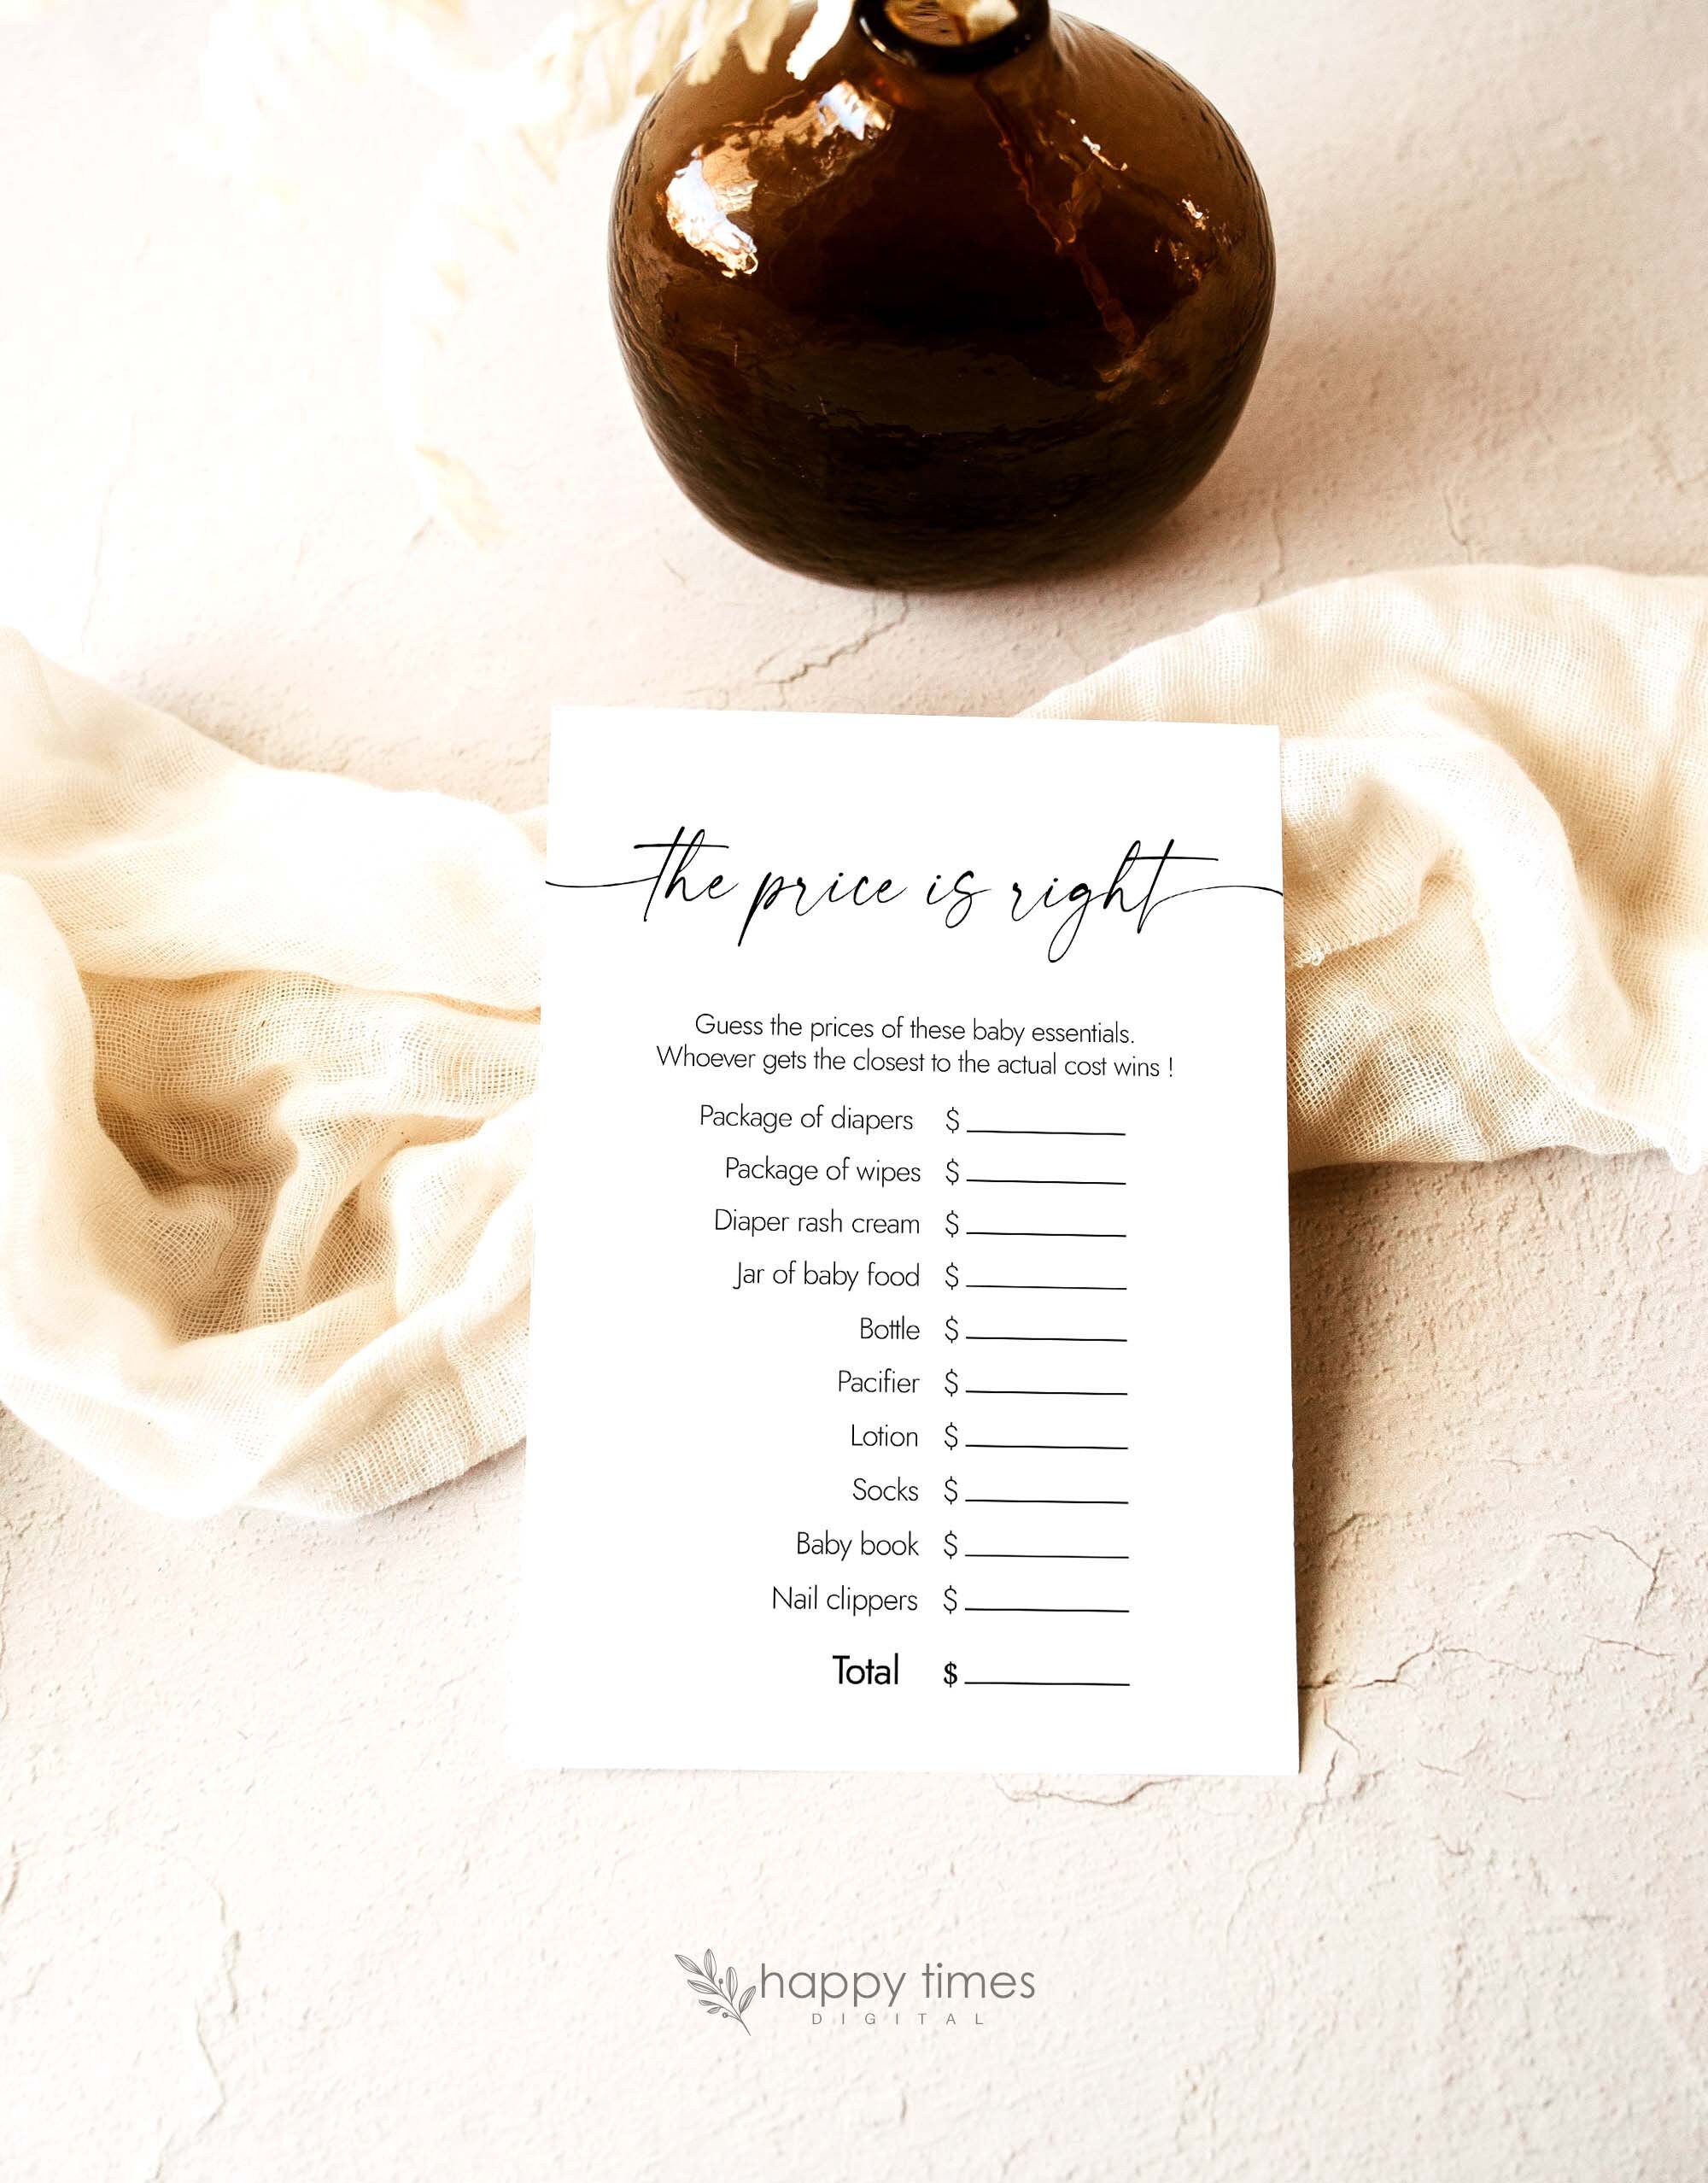 the price is right
Guess the prices of these baby essentials.
Whoever gets the closest to the actual cost wins !
Package of diapers $
Package of wipes $
Diaper rash cream $
Jar of baby food $
Bottle $
Pacifier $
Lotion $
Socks $
Baby book $
Nail clippers $
Total $
happy times
DIGITAL